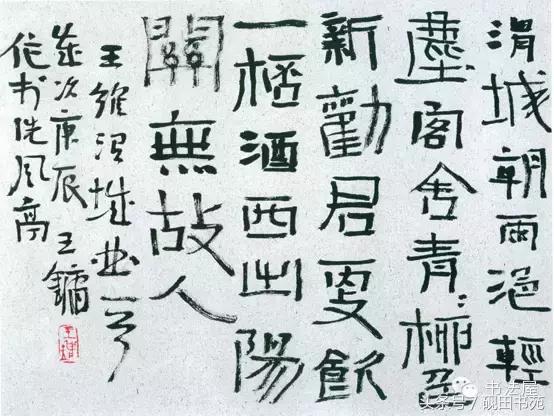 渭城朝雨浥輕
塵客舍青〻柳色
新勸君更飲
一桮酒西出陽
關無故人
王維渭城曲一首
歲次庚辰王鏞
作书风高
书法屋
头条号/砚田书苑